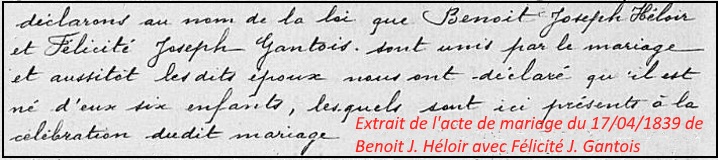 déclarons au nom de la loi que Benoit Joseph Héloir
et Félicité Joseph Gantois. sont unis par le mariage
et aussitôt les dits époux nous ont déclaré qu'il est
né d'eux six enfants, lesquels sont ici présents à la
célébration dudit mariage
Extrait de l'acte de mariage du 17/04/1839 de
Benoit J. Héloir avec Félicité J. Gantois